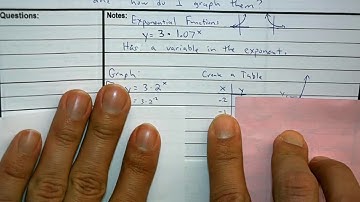 and how do I graph them?
Questions: Notes: Exponential Functions
y = 3 · 1.07ˣ
Has a variable in the exponent.
Graph: Create a Table
y = 3·2ˣ x y
= 3·2⁻² -2
-1